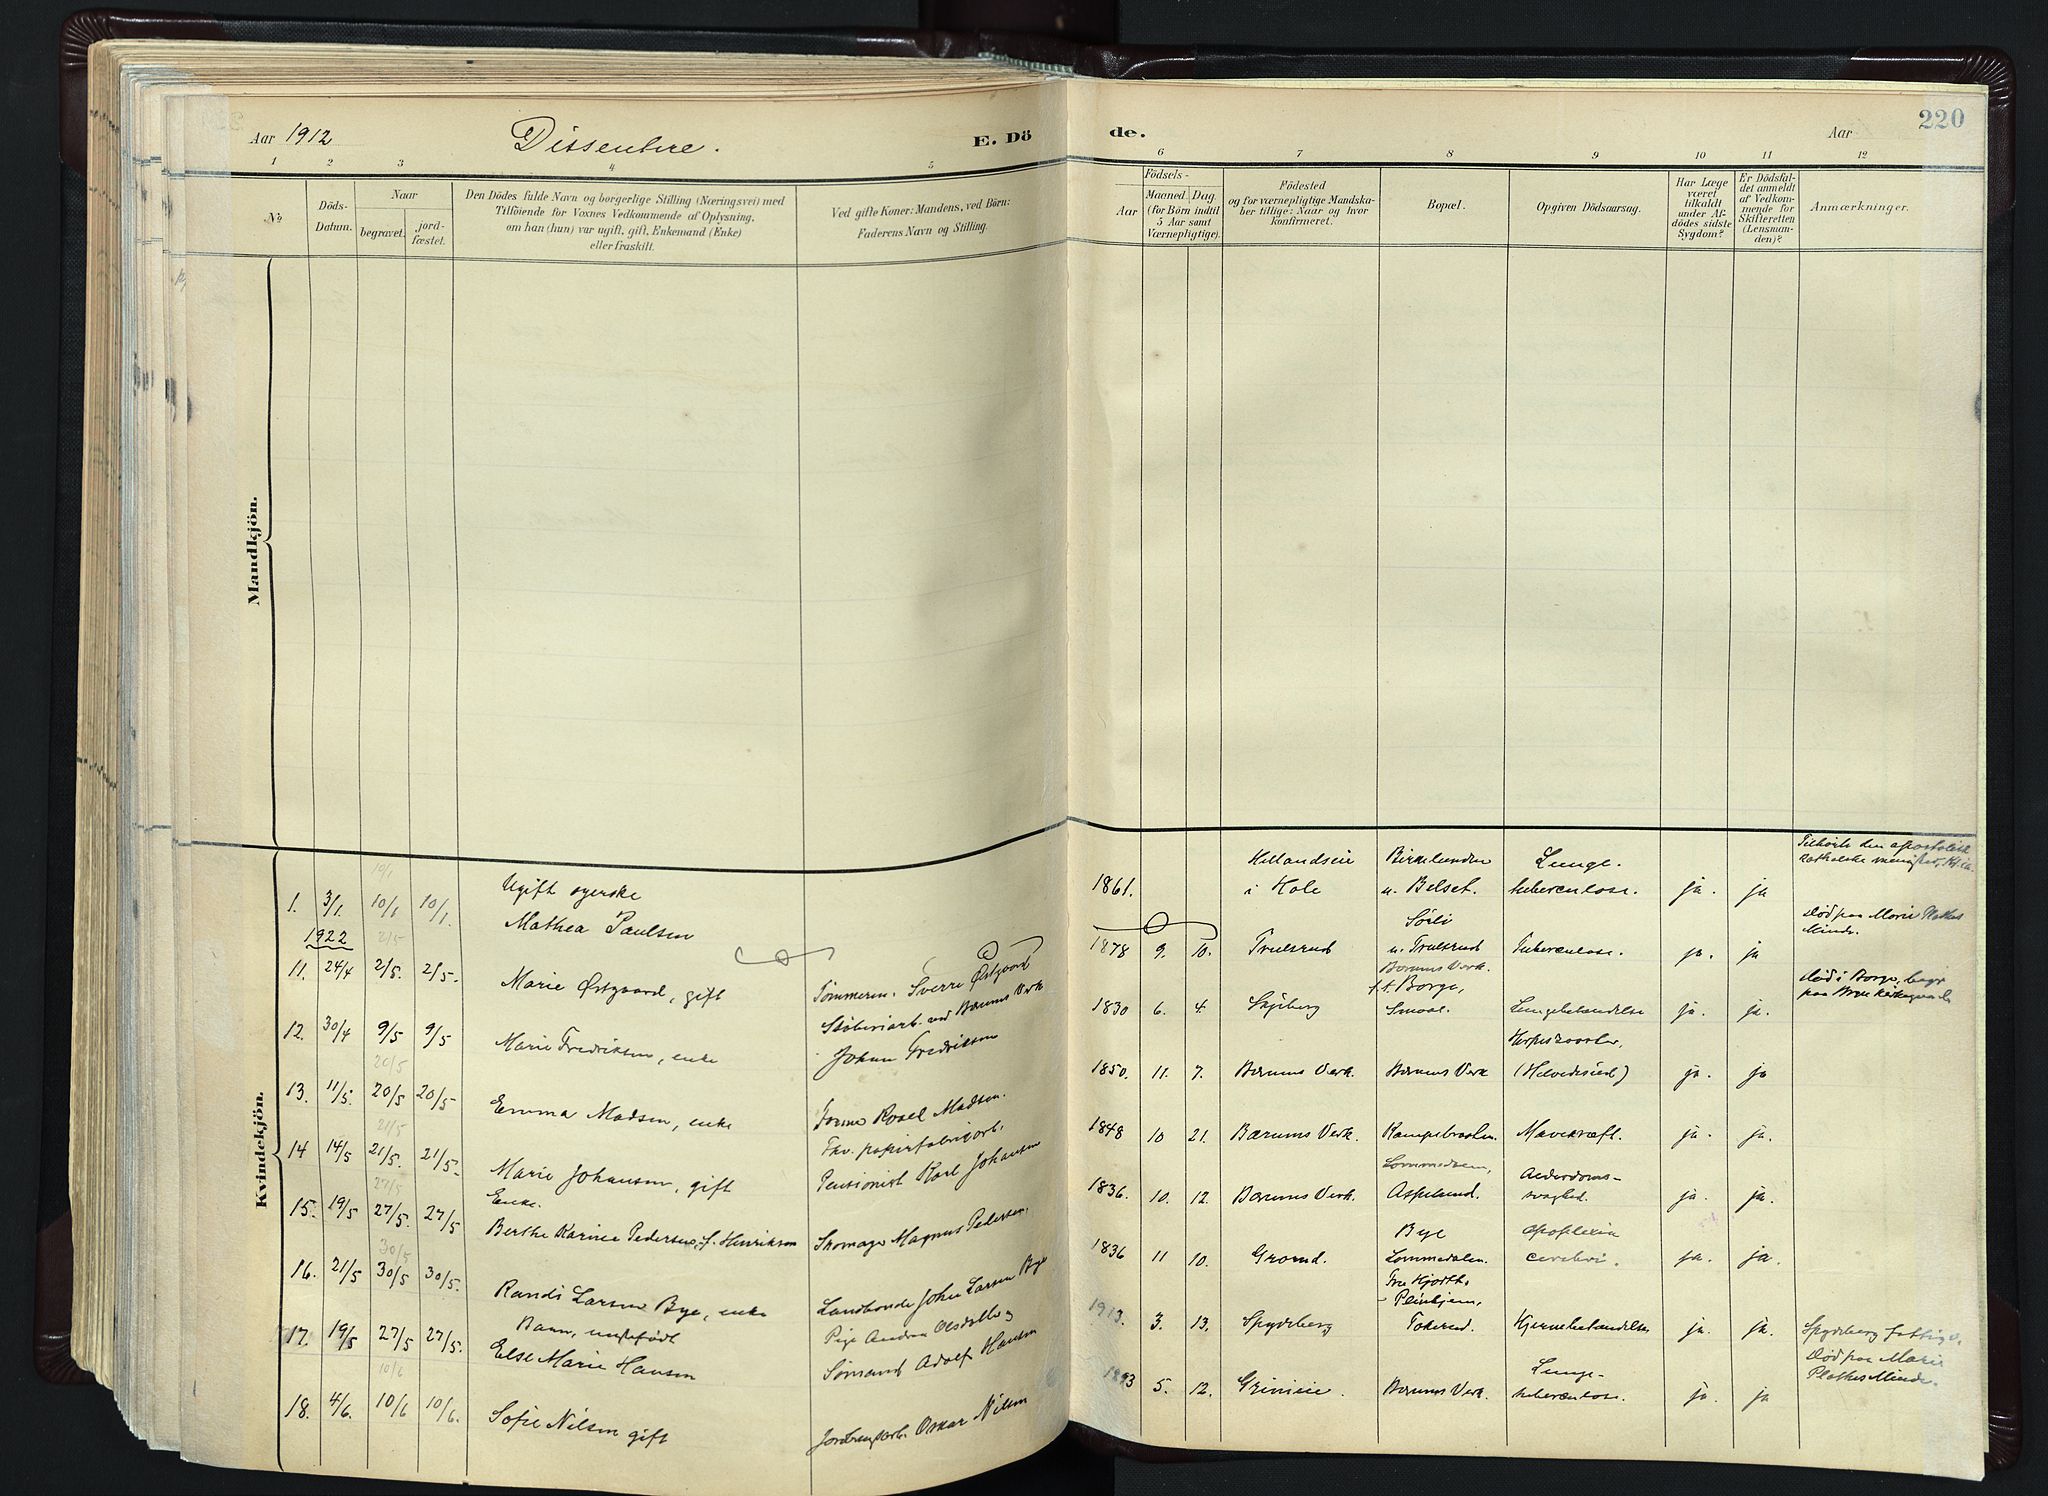 Aar 1912
Dissentere.
E. Dö
de.
Aar
220
1 2 3 4 5
6 7 8 9 10 11 12
No
Döds-
Datum.
Naar
begravet.
jord-
fæstet.
Den Dödes fulde Navn og borgerlige Stilling (Næringsvei) med
Tilföiende for Voxnes Vedkommende af Oplysning,
om han (hun) var ugift, gift, Enkemand (Enke)
eller fraskilt.
Ved gifte Koner: Mandens, ved Börn:
Faderens Navn og Stilling.
Födsels-
Aar
Maaned Dag.
(for Börn indtil
5 Aar samt
Værnepligtige).
Födested
og for værnepligtige Mandska-
ber tillige: Naar og hvor
konfirmeret.
Bopæl.
Opgiven Dödsaarsag.
Har Læge
været
tilkaldt
under Af-
dödes sidste
Sygdom?
Er Dödsfal-
det anmeldt
af Vedkom-
mende for
Skifteretten
(Lensman-
den)?
Anmærkninger.
Mandkjön.
Kvindekjön.
10/1
1. 3/1. 10/1 10/1. Ugift syerske
Mathea Paulsen
1861. Hellandseie
i Hole
Birkelunden
u. Belset.
Lunge-
tuberculose. ja. ja
Tilhörte den apostolisk
katholske menighet, Kr.ia.
1922
2/5
11. 24/4 2/5. 2/5. Marie Østgaard, gift
Tømmerm. Sverre Østgaard
1878 9. 10. Trulsrud
Sörli
u. Trulsrud
Bærums Verk.
Tuberculose. ja. ja
Död paa Marie Plathes
Minde.
12. 30/4 9/5 9/5 Marie Fredriksen, enke
Støberiarb. ved Bærums Verk
Johan Fredriksen
1830 6. 4. Skjeberg
f.t. Borge,
Smaal.
Lungebetændelse ja. ja.
Död i Borge, begr.
paa Bryn kirkegaard
20/5
13. 11/5. 20/5 20/5 Emma Madsen, enke
Former Roael Madsen.
1850. 11. 7. Bærums Verk.
Bærums Verk
Herpes zoster,
(Helvedesild) ja. ja
21/5
14 14/5 21/5. 21/5. Marie Johansen, gift
Fhv. papirfabrikarb.
Pensionist Karl Johansen
1848 10 21. Bærums Verk.
Kampebraaten.
Mavekræft. ja. ja.
27/5
15. 19/5 27/5. 27/5 Enke.
Berthe Karine Pedersen, f. Henriksen
Skomager Magnus Pedersen.
1836. 10. 12. Bærums Verk.
Lommedalen,
Aspelund.
Alderdoms-
svaghed. ja. ja.
30/5
16. 21/5 30/5 30/5. Randi Larsen Bye, enke
Landhandl. John Larsen Bye
1836 11 10. Grorud.
Bye
Lommedalen.
Apoplexia
cerebri. ja. ja.
17. 19/5 27/5 27/5. Barn, uægtefödt
Else Marie Hansen
Pige Andrea Olsdatter og
Sømand Adolf Hansen
1913. 3. 13. Spydeberg
Fru Hjorths
Pleiehjem,
Tokerud.
Hjernebetændelse ja. ja.
Spydeberg fattigv.
10/6
18. 4/6. 10/6 10/6. Sofie Nilsen gift
Jernbanearb. Oskar Nilsen
1893 5. 12. Grinie.
Bærums Verk.
Lunge-
tuberculose. ja. ja
Död paa Marie
Plathes Minde.